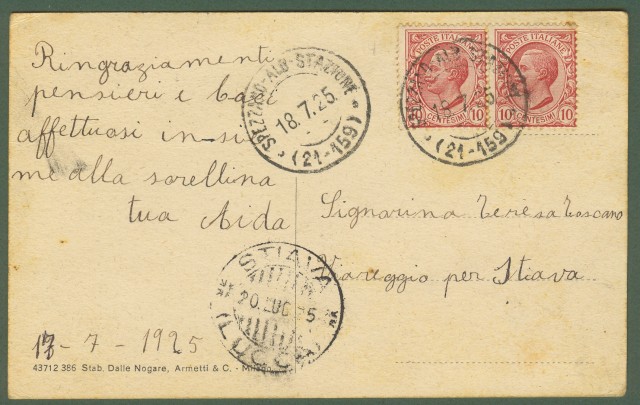 Ringraziamenti
pensieri e baci
affettuosi insie
me alla sorellina
tua Aida
17 - 7 - 1925
43712 386 Stab. Dalle Nogare, Armetti & C. - Milano
SPEZZANO-ALB-STAZIONE
18.7.25
(21-159)
POSTE ITALIANE
CENTESIMI
10 10
POSTE ITALIANE
CENTESIMI
10 10
18.7.25
(21-159)
Signarina Teresa Toscano
Viareggio per Stiava
STIAVA
20.LUG.25
(LUCCA)